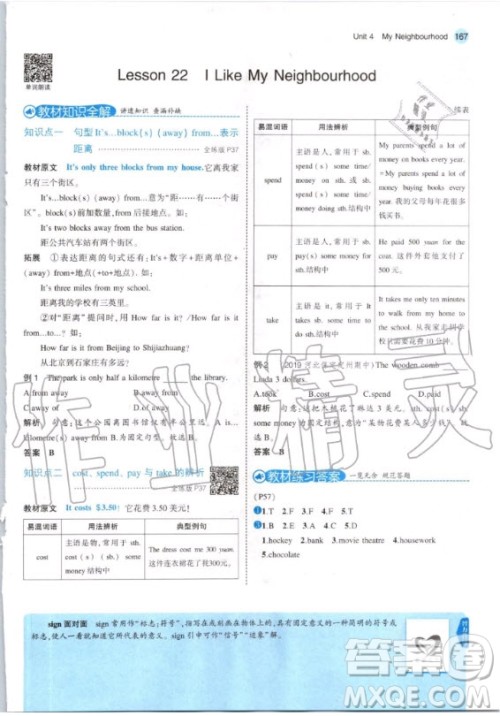 Unit 4 My Neighbourhood 167
单词朗读
Lesson 22 I Like My Neighbourhood
教材知识全解
知识点一 句型It's...block(s) (away) from...表示
距离
全练版 P37
教材原文 It's only three blocks from my house. 它离我家
只有三个街区。
It's...block(s) (away) from...意为“距……有……个街
区”。block(s)前加数量，from后接地点。如：
It's two blocks away from the bus station.
距公共汽车站有两个街区。
拓展 ①表达距离的句式还有：It's+数字+距离单位+
(away) from+地点(+to+地点)。如：
It's three miles from my school.
距离我的学校有三英里。
②对“距离”提问时，用 How far is it? /How far is it
from...to...? 如：
How far is it from Beijing to Shijiazhuang?
从北京到石家庄有多远?
例 1 The park is only half a kilometre the library.
A.from away B.away from
C.away of D.from
答案 B
知识点二 cost、spend、pay 与 take 的辨析
全练版 P37
教材原文 It costs $3.50! 它花费 3.50 美元!
易混词语 用法辨析 典型例句
cost
主语是物，常用于 sth.
cost(s) (sb.) some
money 结构中
The dress cost me 300 yuan.
这件连衣裙花了我 300
元。
续表
易混词语 用法辨析 典型例句
spend
主语是人，常用于 sb.
spend(s) some time/
money on sth. 或 sb.
spend(s) some time/
money (in) doing
sth. 结构中
My parents spend a lot of
money on books every year.
=My parents spend a lot of
money buying books every
year. 我的父母每年花很多
钱买书。
pay
主语是人，常用于 sb.
pay(s) some money for
sth. 结构中
He paid 500 yuan for the
coat. 这件外套他支付了
500 元。
take
主语是 it，常用于 It
take(s) sb. some time
to do sth. 结构中
It takes me only ten minutes
to walk from my home to
例 2
The wooden comb
Linda 3 dollars.
答案 B
教材练习答案 一览无余 规范答题
(P57)
1.B 2.T 3.T 4.F
1.hockey 2.bank 3.movie theatre 4.housework
5.chocolate
sign 面对面 sign 常用作“标志;符号”，指写在或刻画在物体上的、具有固定意义的一种简明的符号或
标志，使人一看就知道它所代表的意义。sign 引申可作“信号”“迹象”解。
作业精灵
答案圈
MXQE.COM